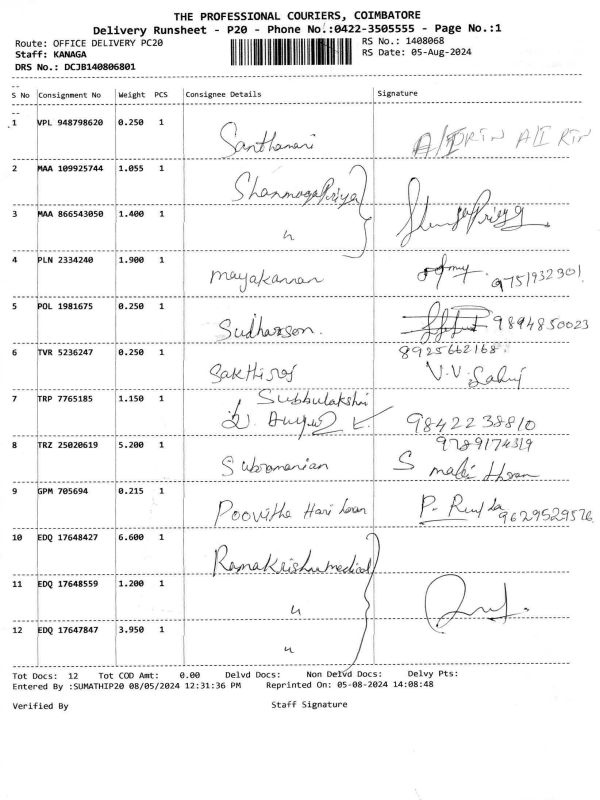 THE PROFESSIONAL COURIERS, COIMBATORE
Delivery Runsheet - P20 - Phone No.:0422-3505555 - Page No.:1
Route: OFFICE DELIVERY PC20
RS No.: 1408068
Staff: KANAGA
RS Date: 05-Aug-2024
DRS No.: DCJB140806801
S No Consignment No Weight PCS Consignee Details Signature
1 VPL 948798620 0.250 1 Santhamani
2 MAA 109925744 1.055 1 Shanmugapriya
3 MAA 866543050 1.400 1 "
4 PLN 2334240 1.900 1 mayakannan 9751932301
5 POL 1981675 0.250 1 Sudharson. 9894850023
6 TVR 5236247 0.250 1 Sakthi 8925662168.
V.V.
7 TRP 7765185 1.150 1 Subbulakshi
9842238810
8 TRZ 25020619 5.200 1 Subramanian 9789174319
S
9 GPM 705694 0.215 1 Poovitha Hari P. 9629529576
10 EDQ 17648427 6.600 1 Ramakrishna medical
11 EDQ 17648559 1.200 1 "
12 EDQ 17647847 3.950 1 "
Tot Docs: 12 Tot COD Amt: 0.00 Delvd Docs: Non Delvd Docs: Delvy Pts:
Entered By :SUMATHIP20 08/05/2024 12:31:36 PM Reprinted On: 05-08-2024 14:08:48
Verified By Staff Signature